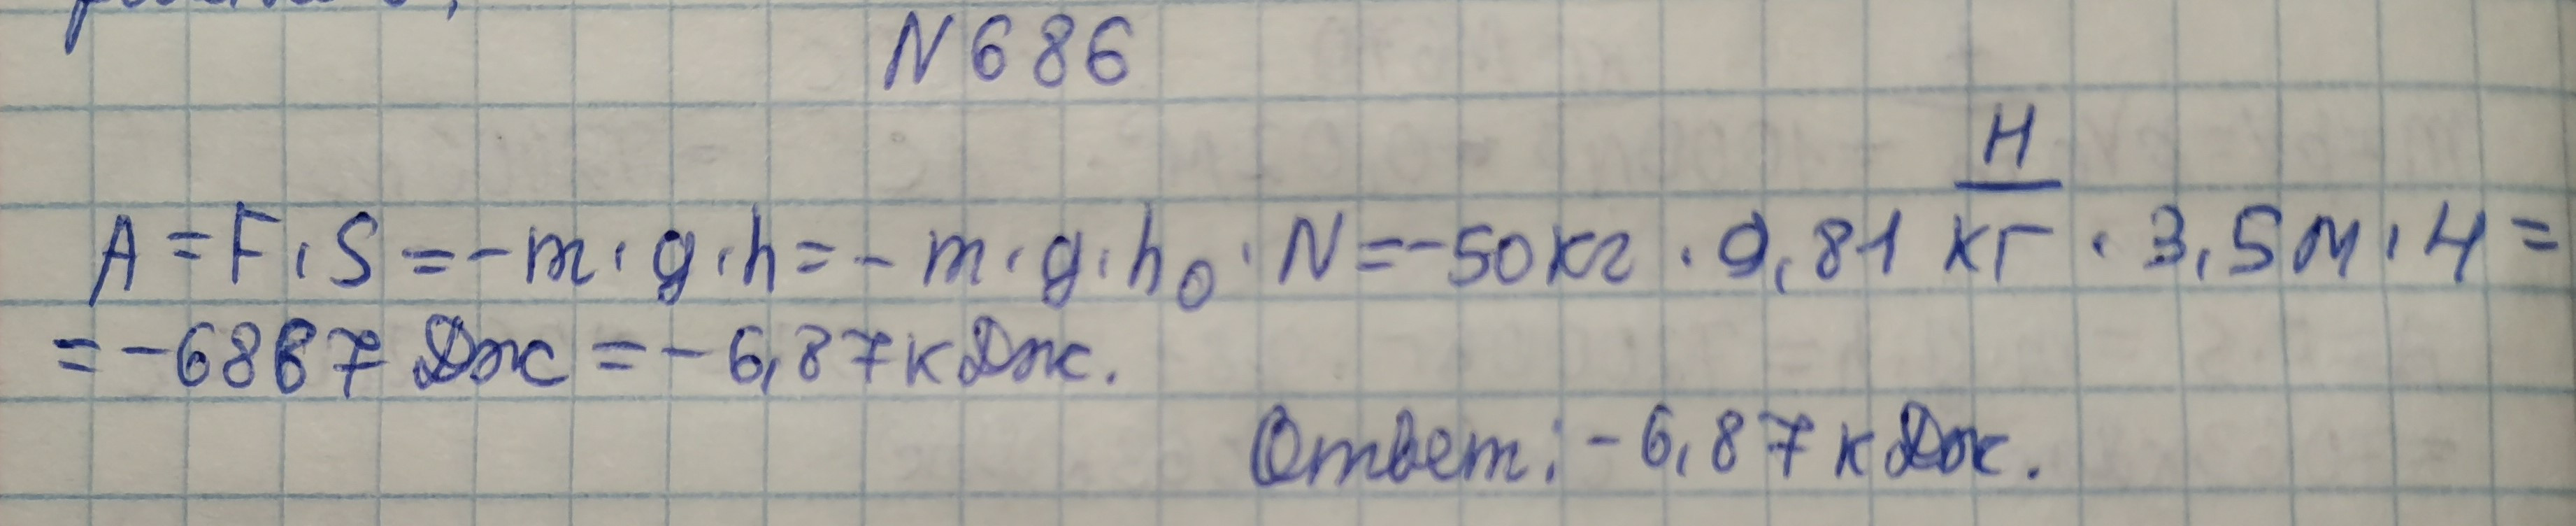 N 686
A = F · S = - m · g · h = - m · g · h₀ · N = - 50 кг · 9,81 Н/кг · 3,5 м · 4 =
= - 6867 Дж = - 6,87 кДж.
Ответ: - 6,87 кДж.